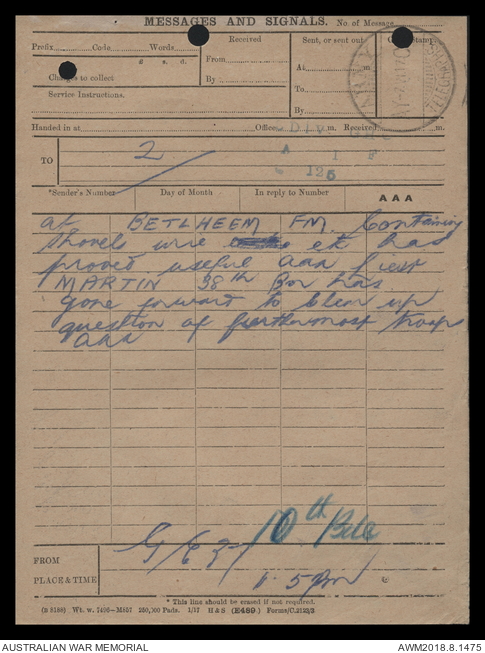 MESSAGES AND SIGNALS. No. of Message
Prefix Code Words
£ s. d.
Charges to collect
Service Instructions.
Received
From
By
Sent, or sent out
At m
To
By
Office Stamp
ARMY TELEGRAPHS
Handed in at Office m. Received m.
A I F
125
TO
2
*Sender's Number Day of Month In reply to Number AAA
at BETLHEEM FM. Containing
shovels wire etc had
proved useful aaa Lieut
MARTIN 38th Bn has
gone forward to clear up
question of furthermost troops
aaa
10th Bde
FROM
PLACE & TIME
5 pm
* This line should be erased if not required.
(B 8188) Wt. w. 7496—M857 250,000 Pads. 1/17 H & S (E489) Forms/C.2123/3
AUSTRALIAN WAR MEMORIAL
AWM2018.8.1475